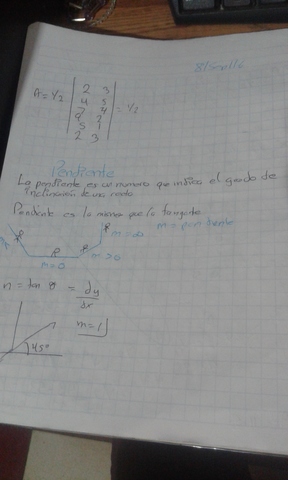 A = 1/2 | 2 3 | = 1/2
4 5
7 4
9 2
5 1
2 3
Pendiente
La pendiente es un numero que indica el grado de
inclinacion de una recta
Pendiente es lo mismo que la tangente
m = pendiente
m = ∞
m > 0
m = 0
m = tan θ = dy
dx
m = 1
45°